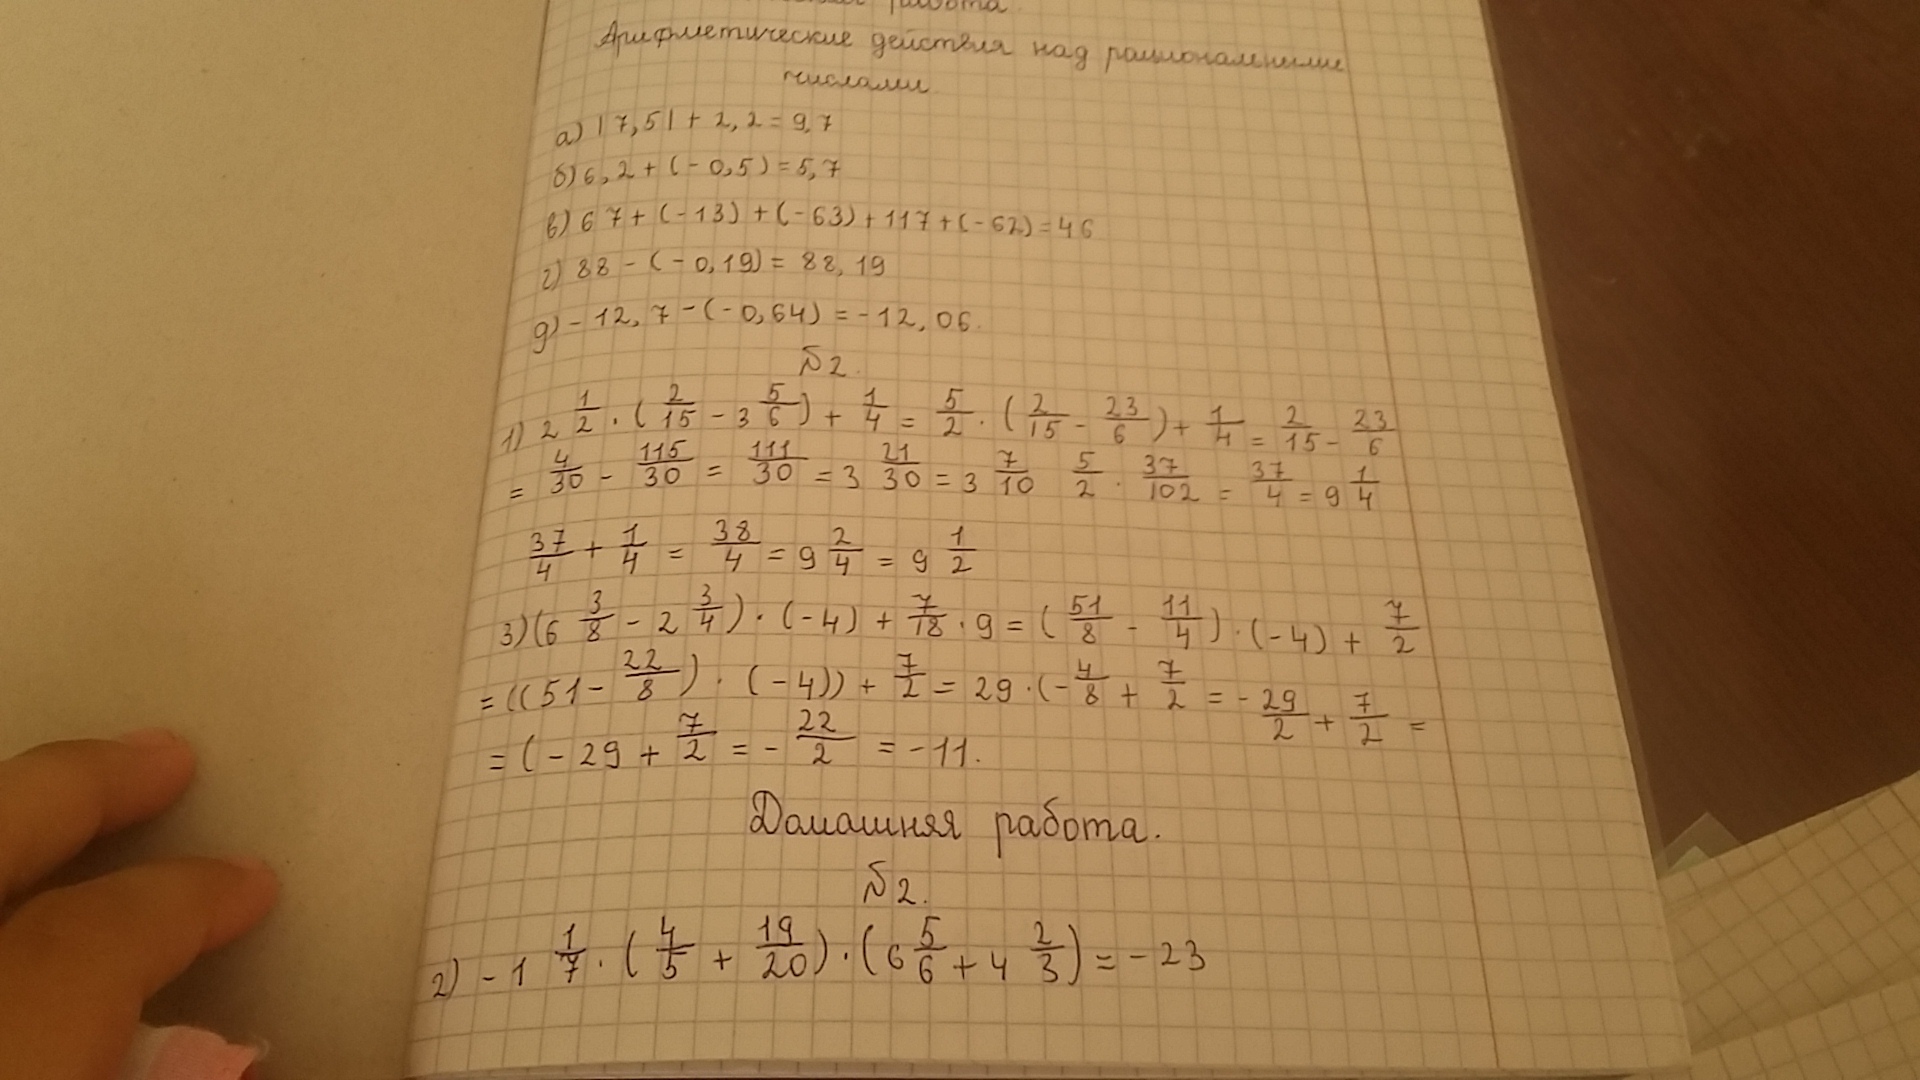 работа.
Арифметические действия над рациональными
числами
а) |7,5| + 2,2 = 9,7
б) 6,2 + (-0,5) = 5,7
в) 67 + (-13) + (-63) + 117 + (-62) = 46
г) 88 - (-0,19) = 88,19
д) -12,7 - (-0,64) = -12,06.
№2.
1) 2 1/2 · (2/15 - 3 5/6) + 1/4 = 5/2 · (2/15 - 23/6) + 1/4 = 2/15 - 23/6
= 4/30 - 115/30 = 111/30 = 3 21/30 = 3 7/10 5/2 · 37/102 = 37/4 = 9 1/4
37/4 + 1/4 = 38/4 = 9 2/4 = 9 1/2
3) (6 3/8 - 2 3/4) · (-4) + 7/18 · 9 = (51/8 - 11/4) · (-4) + 7/2
= ((51 - 22/8) · (-4)) + 7/2 = 29 · (-4/8 + 7/2 = -29/2 + 7/2 =
= (-29 + 7/2 = -22/2 = -11.
Домашняя работа.
№2.
2) -1 1/7 · (4/5 + 19/20) · (6 5/6 + 4 2/3) = -23